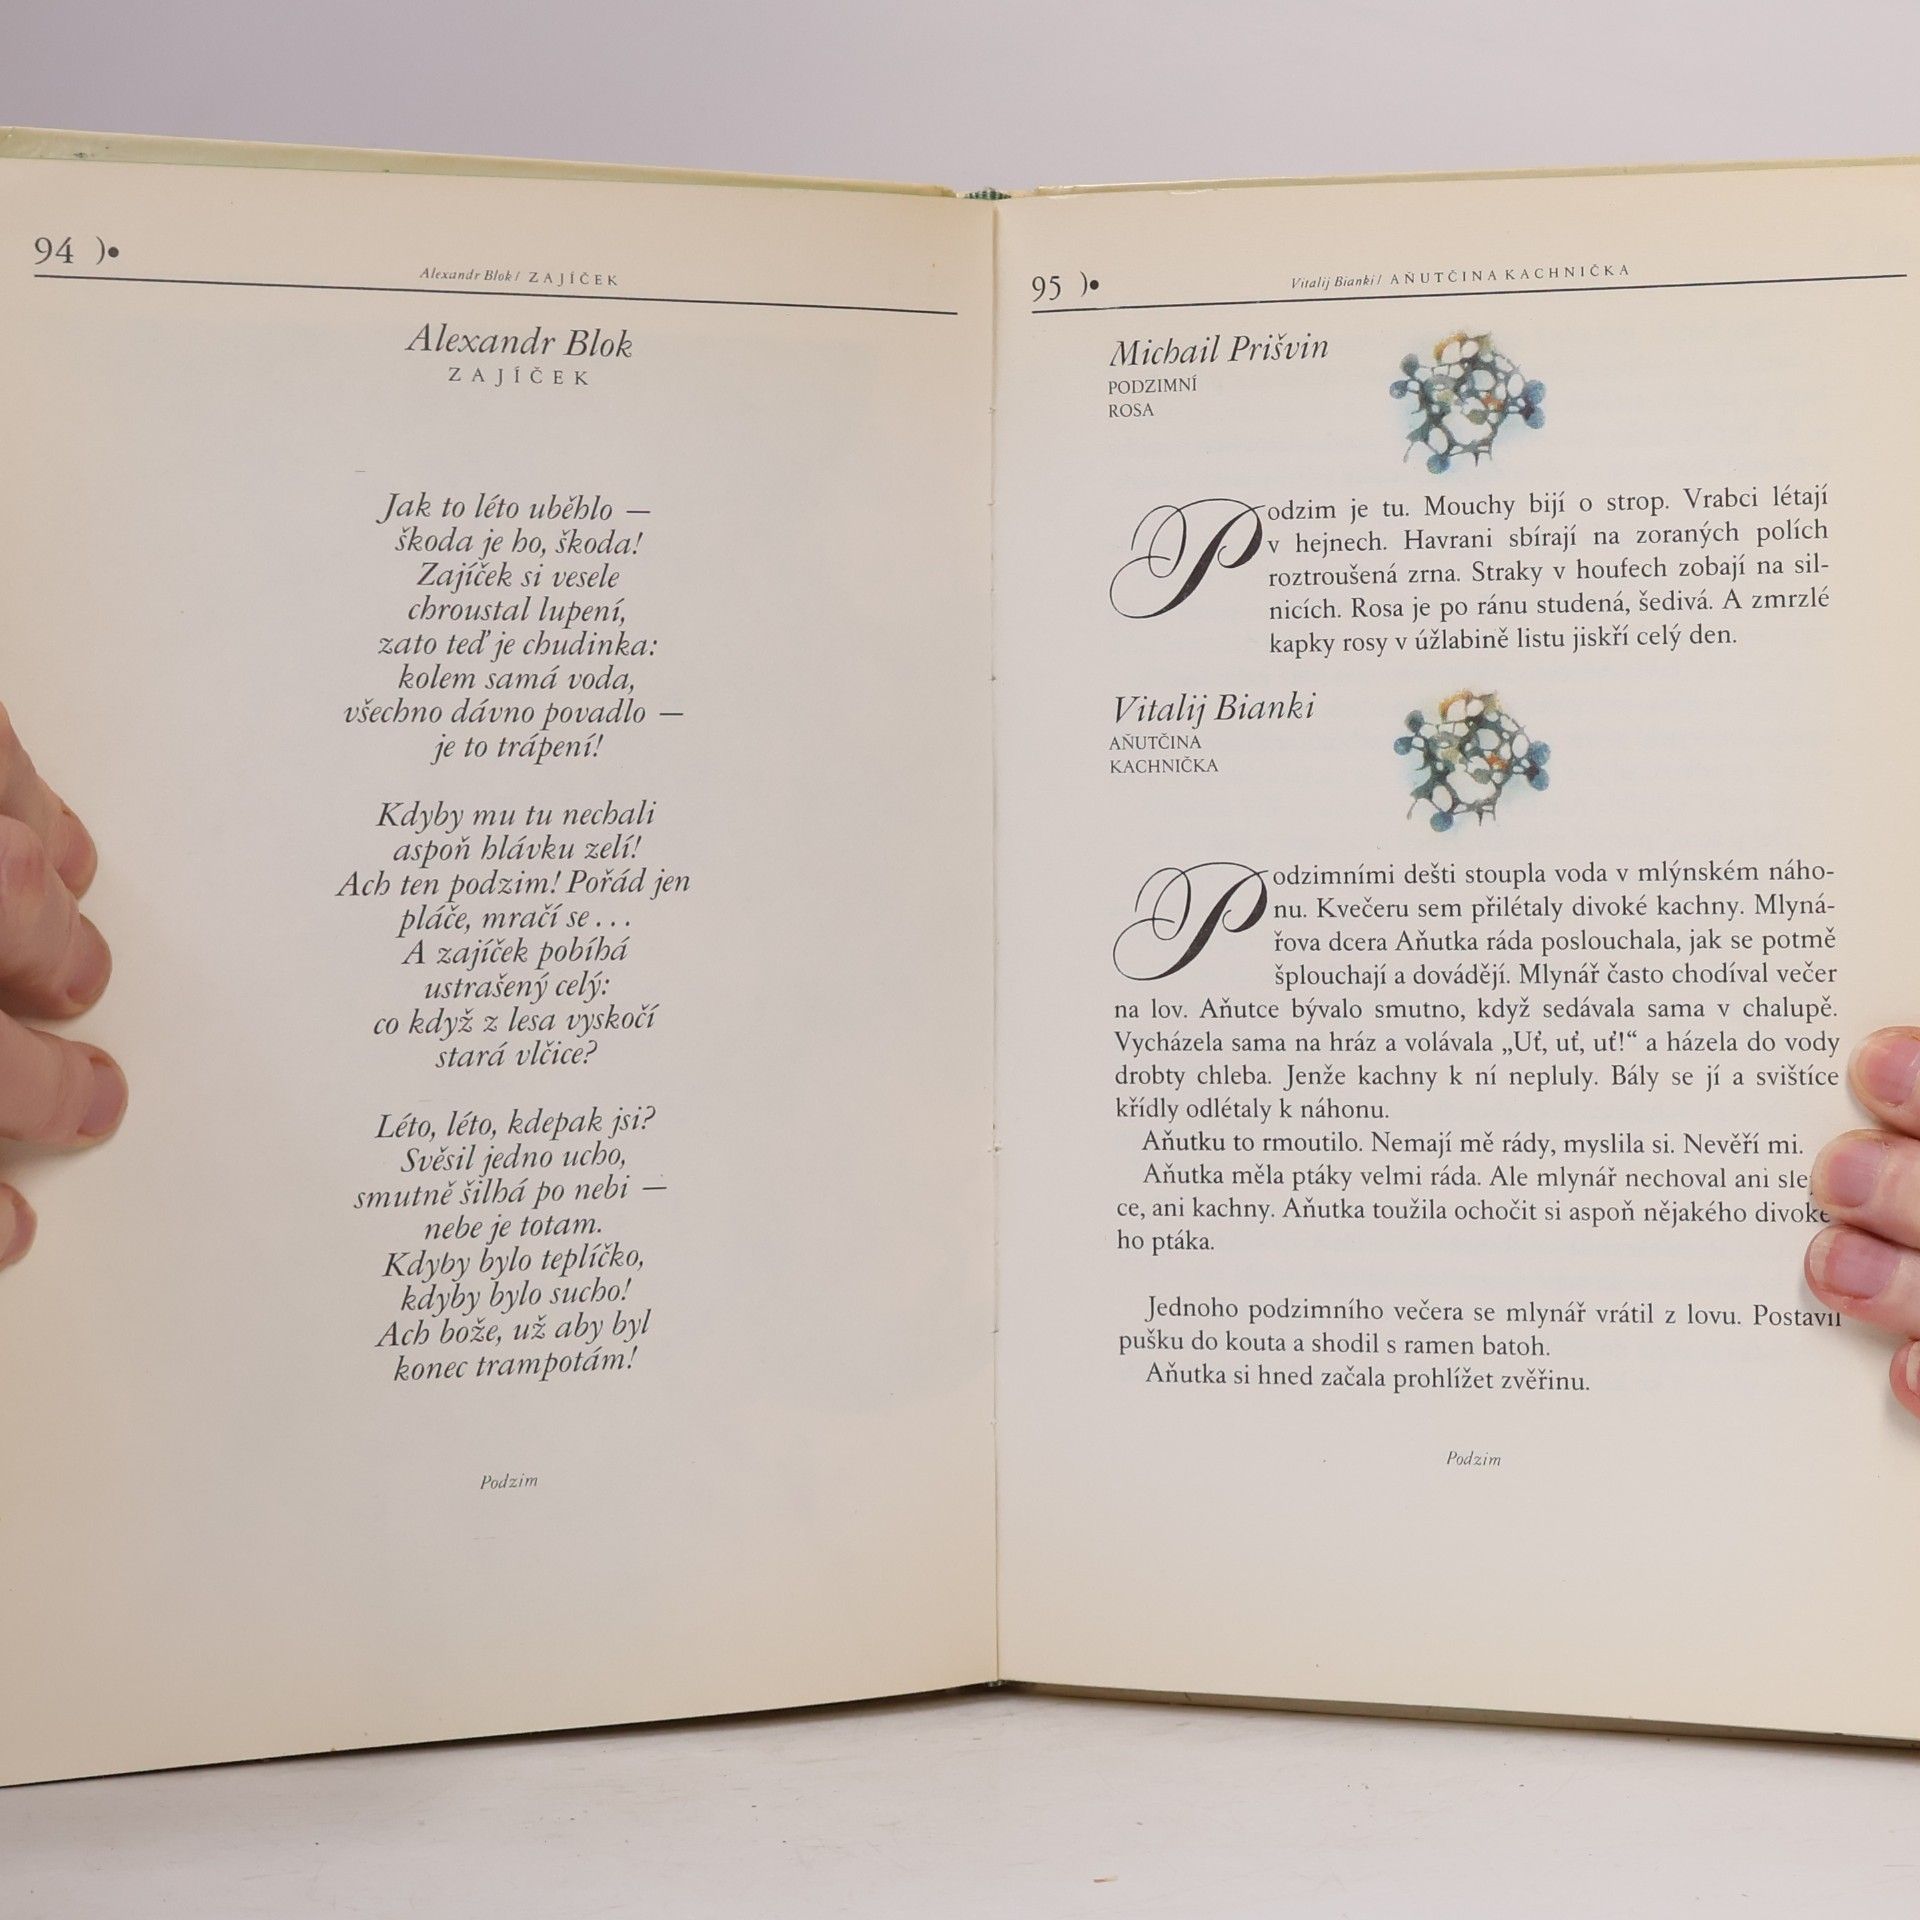 94 )•
Alexandr Blok / ZAJÍČEK
Alexandr Blok
ZAJÍČEK
Jak to léto uběhlo —
škoda je ho, škoda!
Zajíček si vesele
chroustal lupení,
zato teď je chudinka:
kolem samá voda,
všechno dávno povadlo —
je to trápení!
Kdyby mu tu nechali
aspoň hlávku zelí!
Ach ten podzim! Pořád jen
pláče, mračí se . . .
A zajíček pobíhá
ustrašený celý:
co když z lesa vyskočí
stará vlčice?
Léto, léto, kdepak jsi?
Svěsil jedno ucho,
smutně šilhá po nebi —
nebe je totam.
Kdyby bylo teplíčko,
kdyby bylo sucho!
Ach bože, už aby byl
konec trampotám!
Podzim
95 )•
Vitalij Bianki / AŇUTČINA KACHNIČKA
Michail Prišvin
PODZIMNÍ
ROSA
Podzim je tu. Mouchy bijí o strop. Vrabci létají
v hejnech. Havrani sbírají na zoraných polích
roztroušená zrna. Straky v houfech zobají na sil-
nicích. Rosa je po ránu studená, šedivá. A zmrzlé
kapky rosy v úžlabině listu jiskří celý den.
Vitalij Bianki
AŇUTČINA
KACHNIČKA
Podzimními dešti stoupla voda v mlýnském náho-
nu. Kvečeru sem přilétaly divoké kachny. Mlyná-
řova dcera Aňutka ráda poslouchala, jak se potmě
šplouchají a dovádějí. Mlynář často chodíval večer
na lov. Aňutce bývalo smutno, když sedávala sama v chalupě.
Vycházela sama na hráz a volávala „Uť, uť, uť!“ a házela do vody
drobty chleba. Jenže kachny k ní nepluly. Bály se jí a svištíce
křídly odlétaly k náhonu.
Aňutku to rmoutilo. Nemají mě rády, myslila si. Nevěří mi.
Aňutka měla ptáky velmi ráda. Ale mlynář nechoval ani
ce, ani kachny. Aňutka toužila ochočit si aspoň nějakého divoké
ho ptáka.
Jednoho podzimního večera se mlynář vrátil z lovu. Postavil
pušku do kouta a shodil s ramen batoh.
Aňutka si hned začala prohlížet zvěřinu.
Podzim